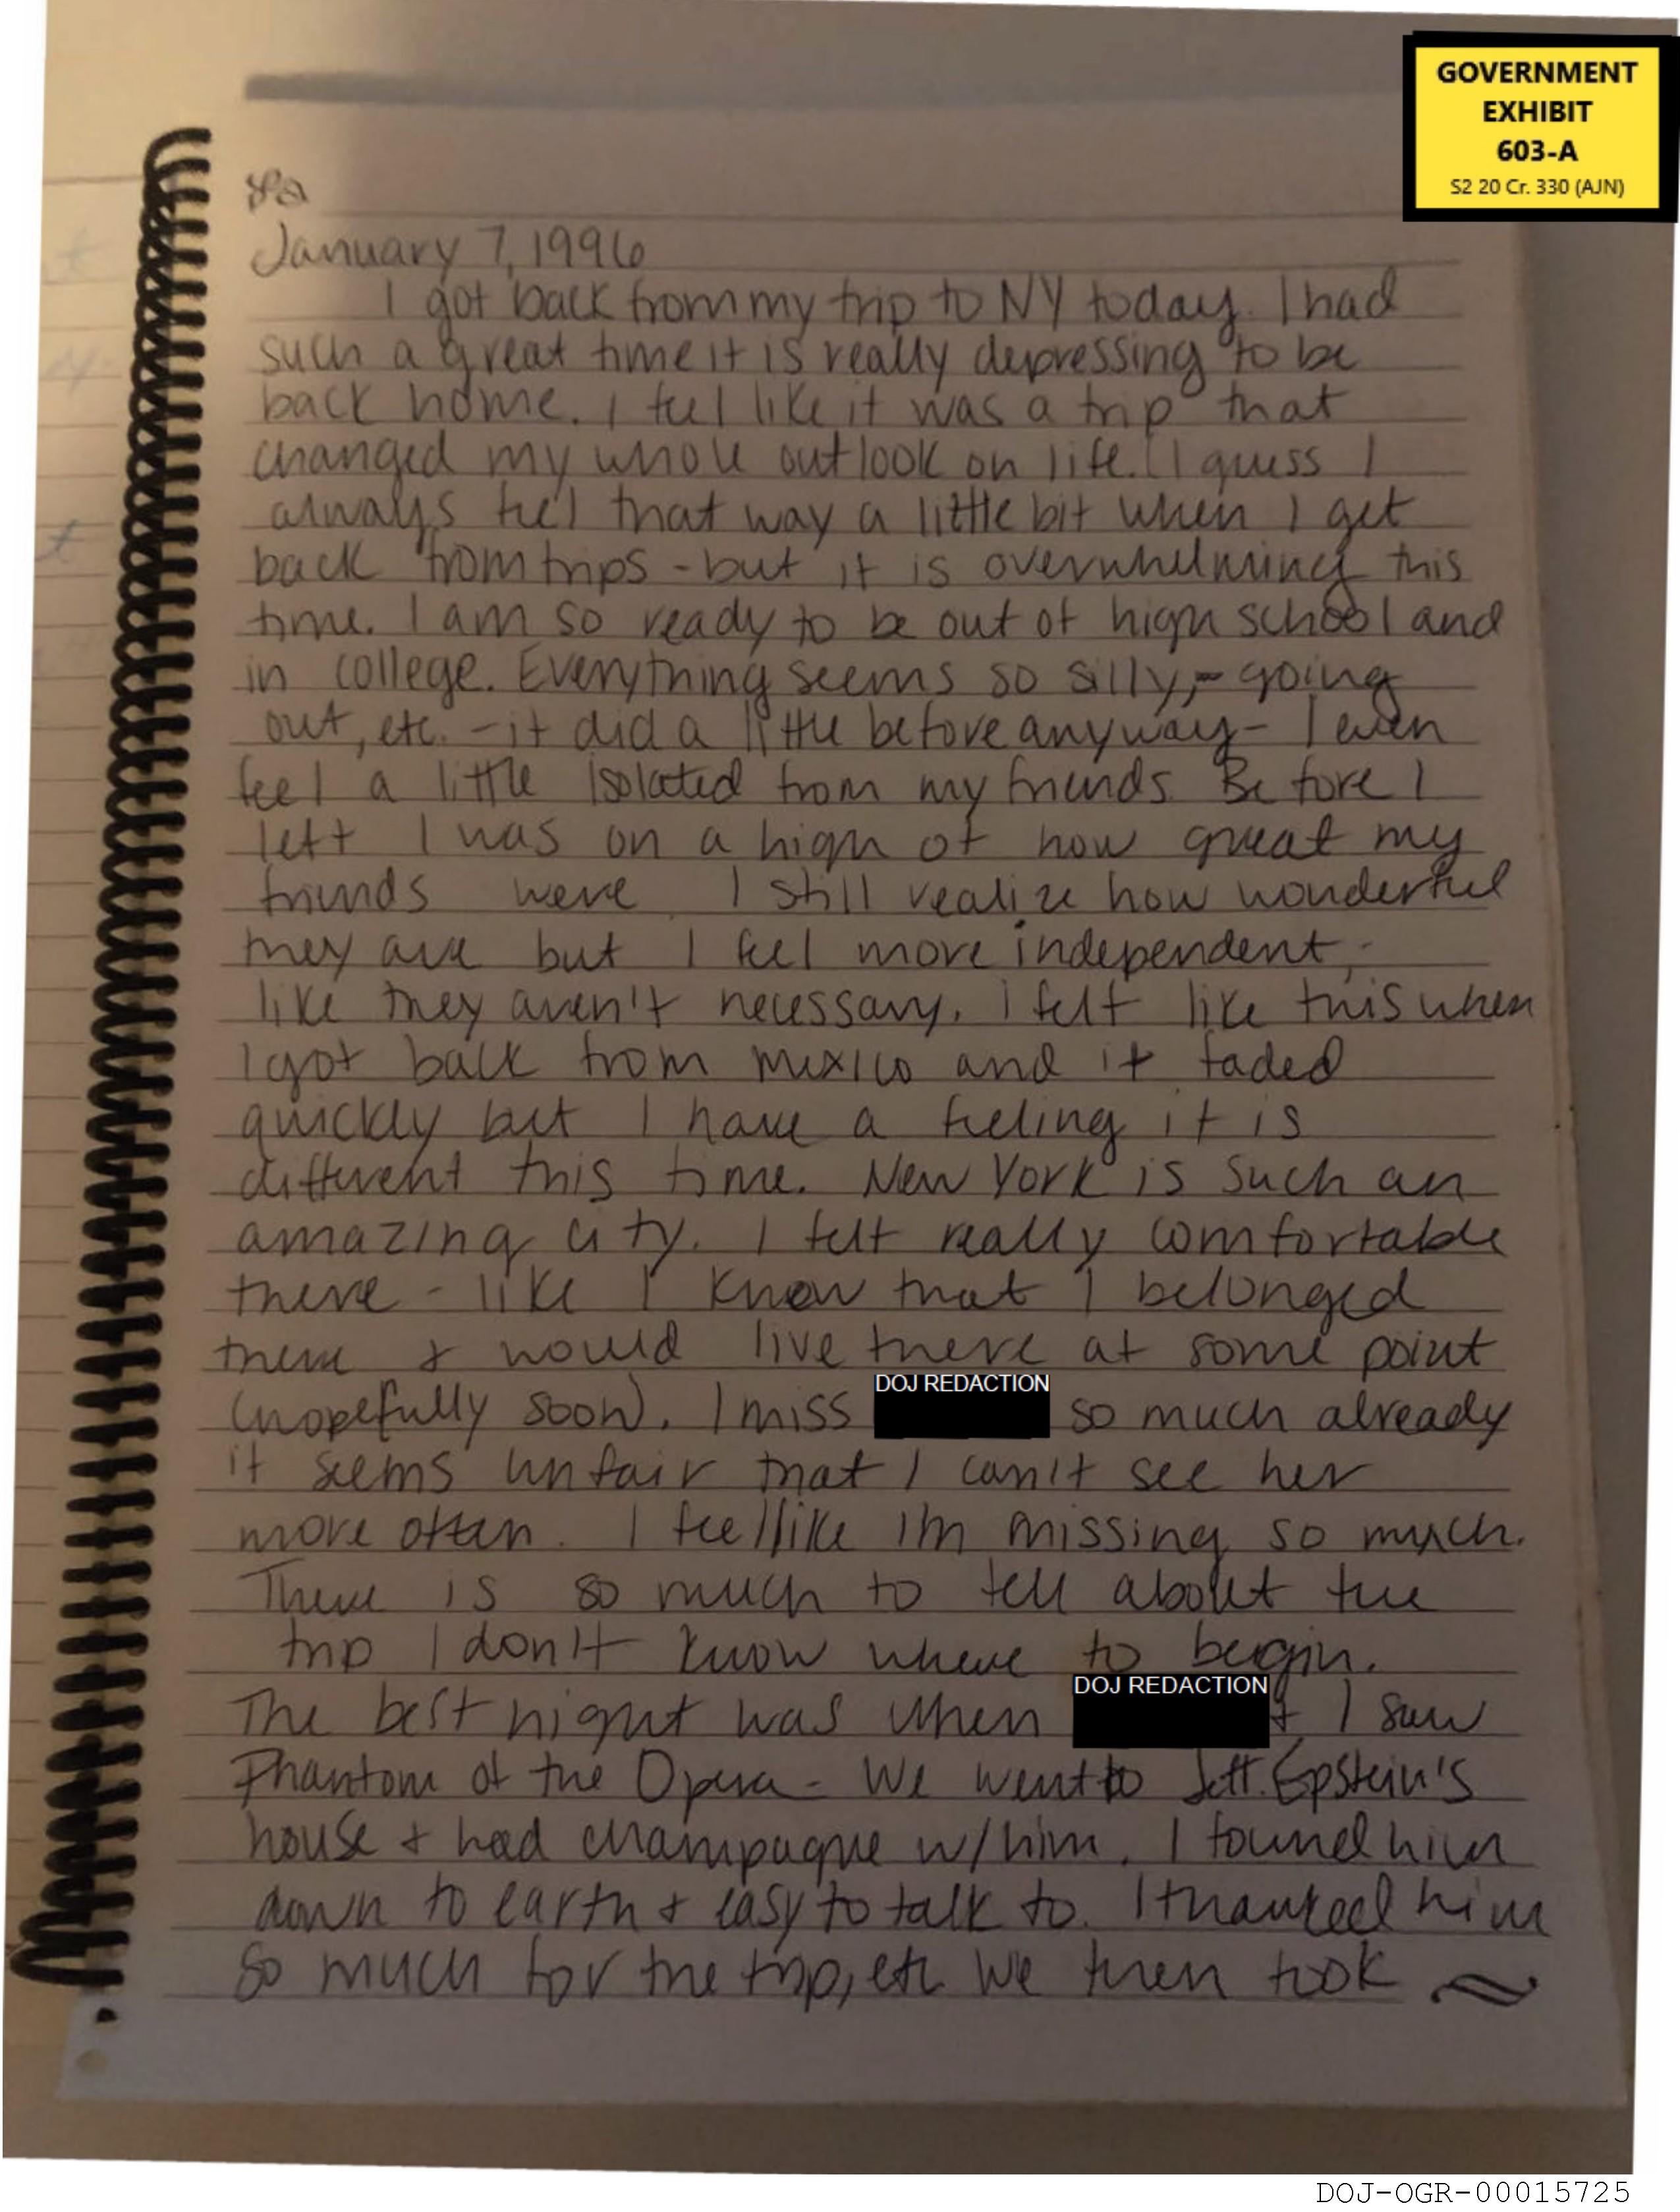 GOVERNMENT
EXHIBIT
603-A
S2 20 Cr. 330 (AJN)
January 7, 1996
I got back from my trip to NY today. I had
such a great time it is really depressing to be
back home. I feel like it was a trip that
changed my whole outlook on life. (I guess I
always feel that way a little bit when I get
back from trips - but it is overwhelming this
time. I am so ready to be out of high school and
in college. Everything seems so silly, - going
out, etc. - it did a little before anyway - I even
feel a little isolated from my friends. Before I
left I was on a high of how great my
friends were. I still realize how wonderful
they are but I feel more independent, -
like they aren't necessary. I felt like this when
I got back from Mexico and it faded
quickly but I have a feeling it is
different this time. New York is such an
amazing city. I felt really comfortable
there - like I know that I belonged
there & would live there at some point
(hopefully soon). I miss DOJ REDACTION so much already
it seems unfair that I can't see her
more often. I feel like I'm missing so much.
There is so much to tell about the
trip I don't know where to begin.
The best night was when DOJ REDACTION & I saw
Phantom of the Opera - We went to Jeff. Epstein's
house & had champagne w/him. I found him
down to earth & easy to talk to. I thanked him
so much for the trip, etc We then took
DOJ-OGR-00015725